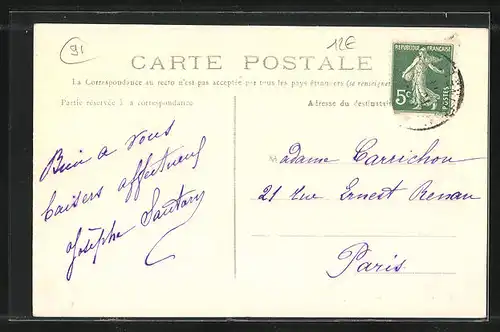 91
12E
CARTE POSTALE
RÉPUBLIQUE FRANÇAISE
5c
POSTES
La Correspondance au recto n'est pas acceptée par tous les pays étrangers (se renseigner
Partie réservée à la correspondance
Adresse du destinataire
Bien a vous
baisers affectueux
Josèphe
Madame Carrichon
21 Rue Ernest Renan
Paris